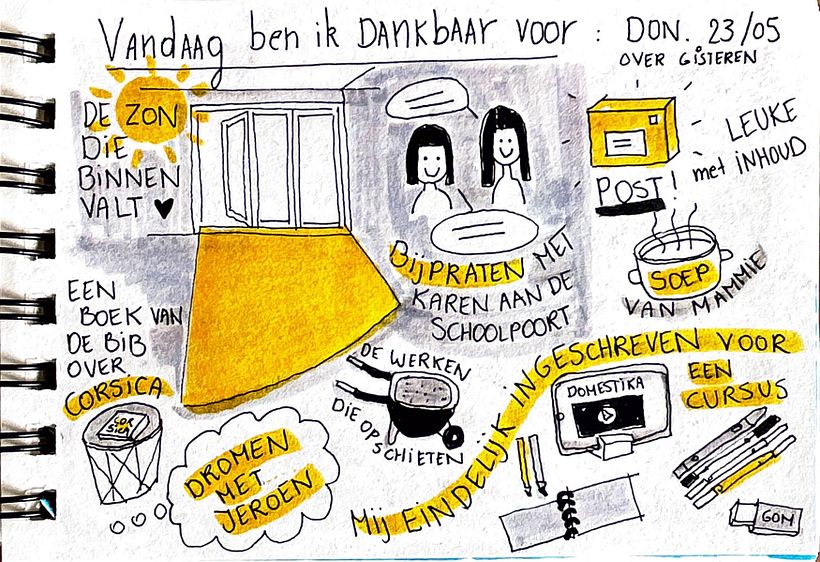 VANDAAG ben ik DANKBAAR VOOR : DON. 23/05
OVER GISTEREN
DE ZON
DIE
BINNEN
VALT ♥
BIJPRATEN MET
KAREN AAN DE
SCHOOLPOORT
LEUKE
POST! met INHOUD
SOEP
VAN MAMMIE
EEN
BOEK VAN
DE BIB
OVER
CORSICA
COR
SICA
DROMEN
MET
JEROEN
DE WERKEN
DIE OPSCHIETEN
Mij EINDELIJK INGESCHREVEN VOOR
EEN
CURSUS
DOMESTIKA
GOM